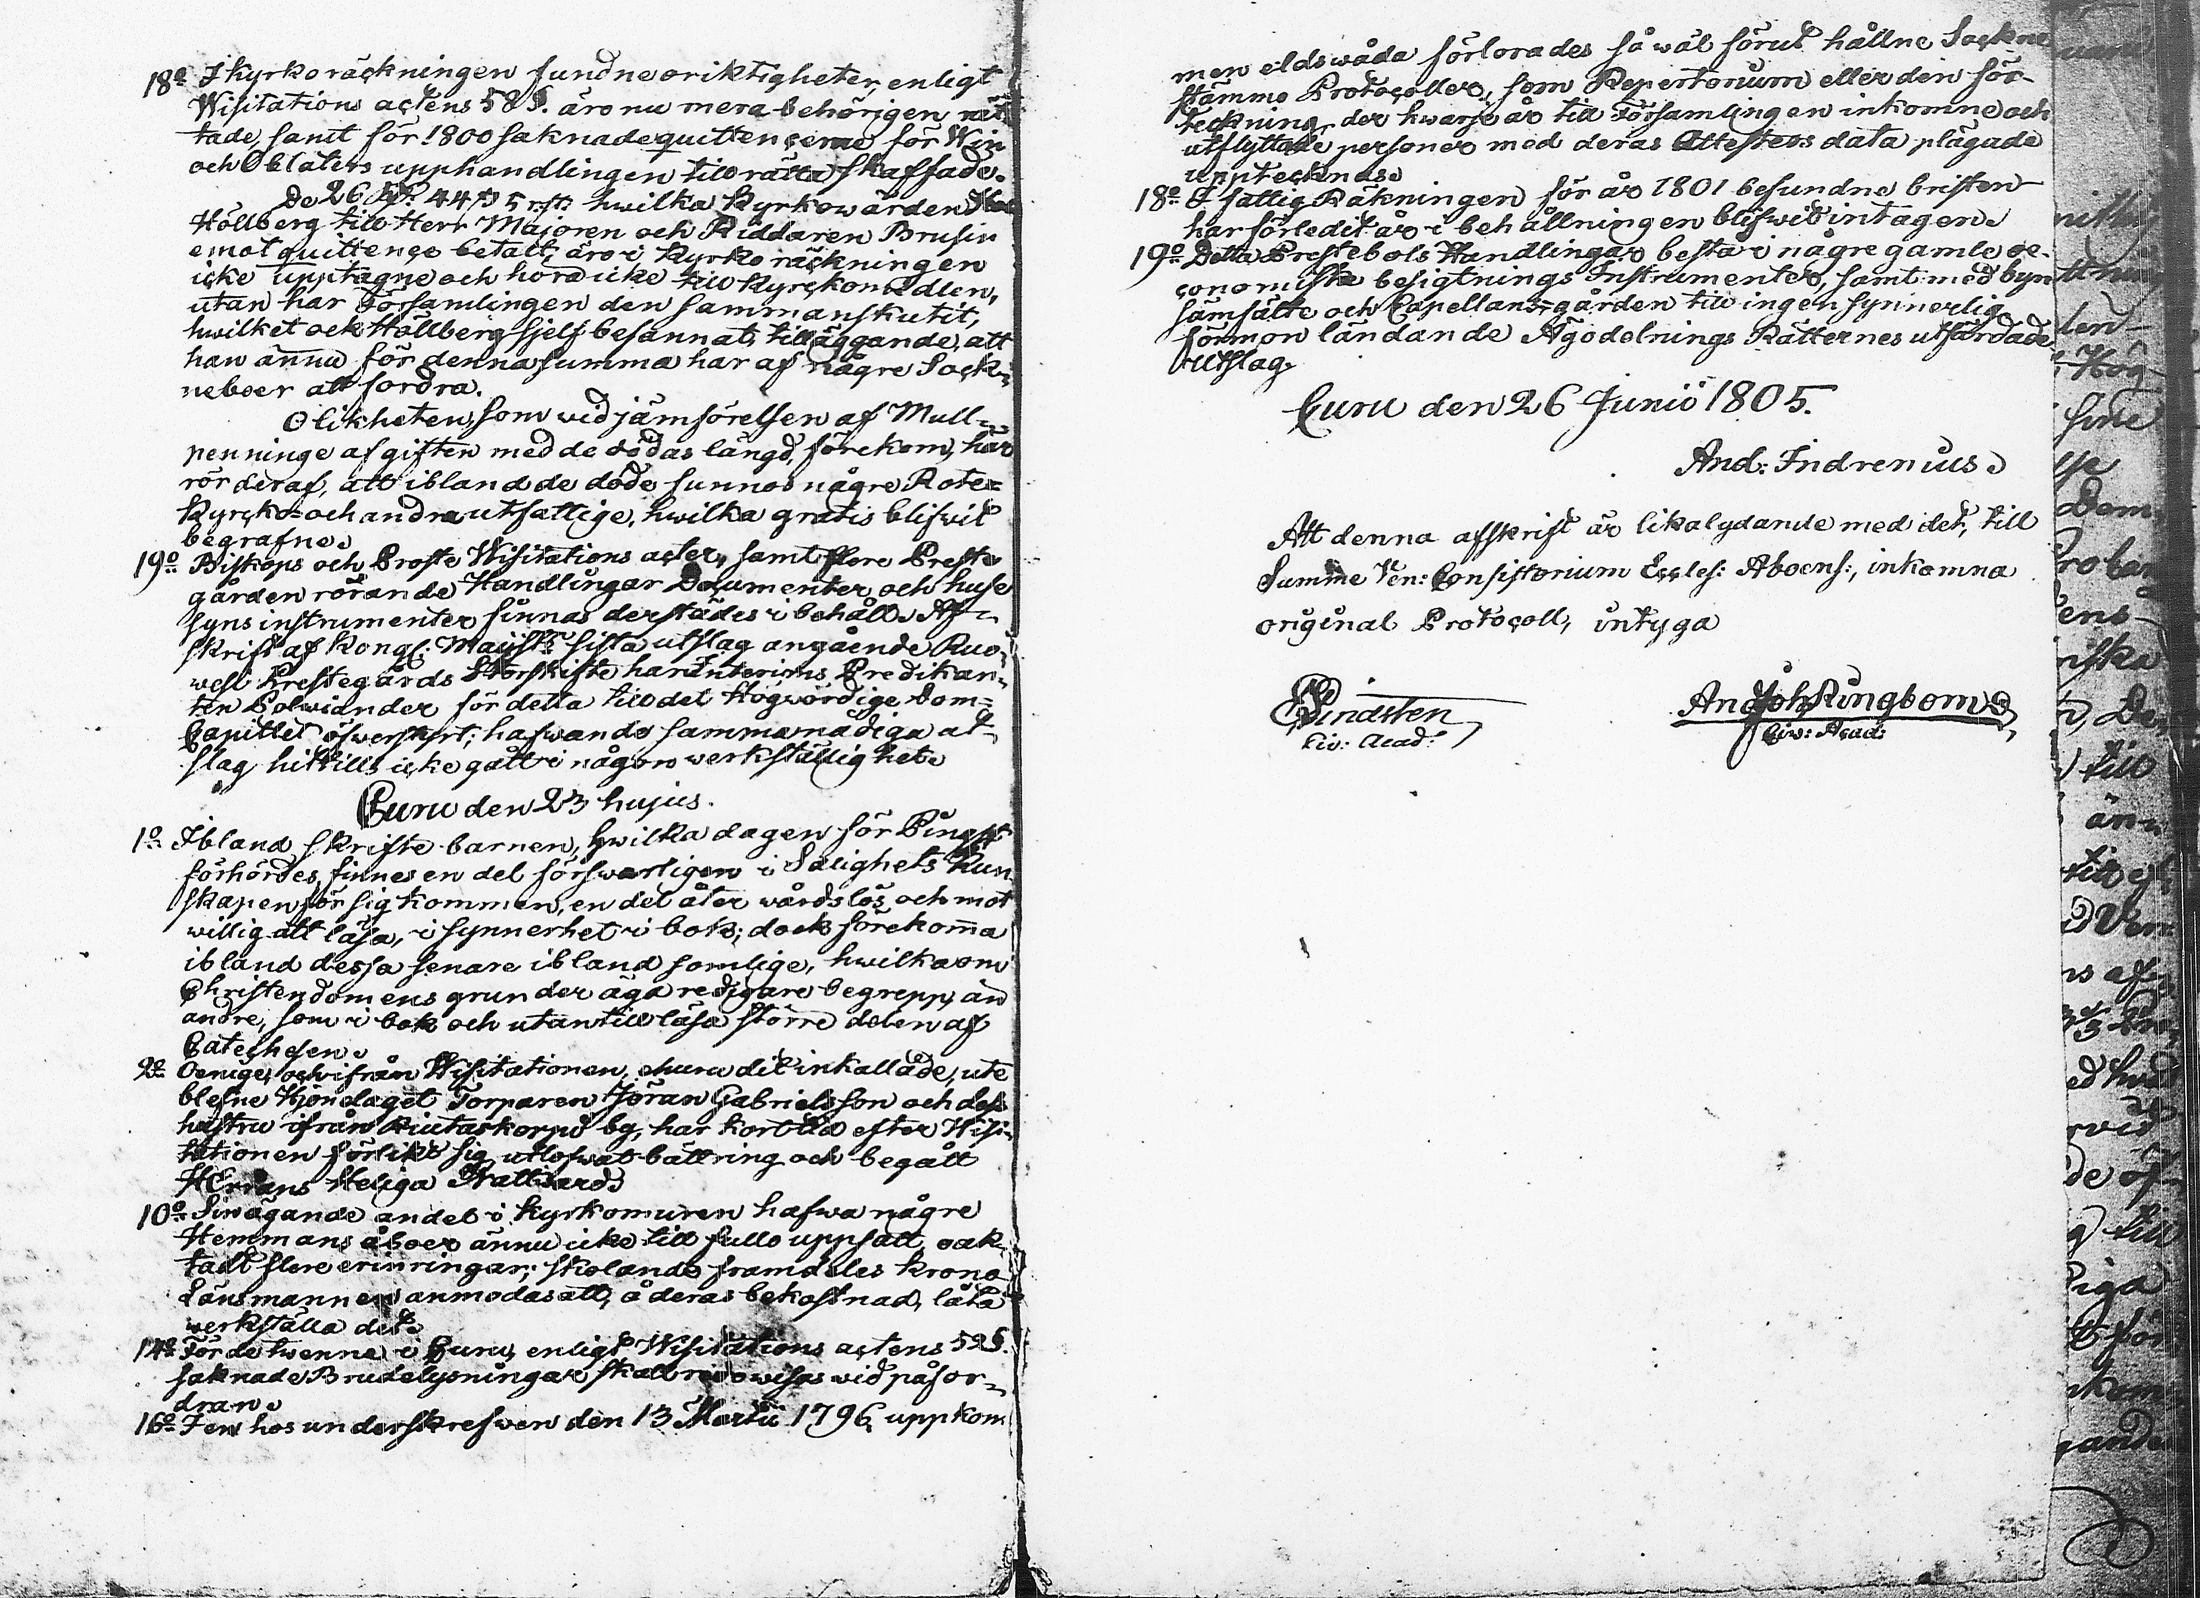 18:o I kyrkoräckningen fundne oriktigheter, enligt
Wisitations actens 58 §. äro nu mera behörigen rät-
tade, samt för 1800 saknade quittencerne för Win
och Oblaters upphandlingen till rätta skaffade.
De 26 44 5 hwilka Kyrkowärden
Hällberg till Herr Majoren och Riddaren Brusin
emot quittence betalt, äro i Kyrkoräckningen
icke upptagne och höra icke till Kyrckomedlen,
utan har Församlingen den sammanskutit,
hwilket ock Hällberg sjelf besannat, tilläggande, att
han ännu för denna summa har af någre Sock-
neboer att fordra.
Olikheten, som wid jämförelsen af Mull-
penninge afgiften med de dödas längd, förekom, här
rör deraf, att ibland de döde funnos någre Rote-
Kyrcko- och andra utfattige, hwilka gratis blifwit
begrafne.
19:o Biskops och Proste Wisitations acter, samt flere Preste
gården rörande Handlingar Documenter och huse
syns instrumenter finnas derstädes i behåll. Af-
skrift af Kongl: Maij:ts sista utslag angående Ruo-
wesi Prestegårds Storskifte har Interims Predikan-
ten Polviander för detta till det Högwördige Dom-
Capitlet öfwersändt; hafwande samma nådiga ut-
slag hittills icke gått i någon werkställighet.
Curu den 23 hujus.
1:o Ibland skrifte barnen, hwilka dagen för Pingst
förhördes, finnes en del förswarligen i Salighets Kun-
skapen för sig kommen, en del åter wårdslös och mot
willig att läsa, i synnerhet i bok; dock förekomma
ibland dessa senare ibland somlige, hwilka om
Christendomens grunder äga redigare begrepp, än
andre, som i bok och utantill läsa större delen af
Catechesen.
2:o Oenige, och ifrån Wisitationen, ehuru dit inkallade, ute
blefne Hjonelaget Torparen Göran Gabrielsson och dess
hustru ifrån Riutaskorpi by, har kort tid efter Wisi-
tationen förlikt sig, utlofwat bättring och begått
HErrans Heliga Nattward.
10:o Sin ägande andel i kyrkomuren hafwa någre
Hemmans åboer ännu icke till fullo uppsatt, oak-
tadt flere erinringar; skolande framdeles Krono
Länsmannen anmodas att, å deras bekostnad, låta
werkställa det.
14:o För de twenne i Curu, enligt Wisitations actens 52 §.
saknade Brudelysningar skall redowisas wid påfor-
dran.
16:o I en hos underskrefwen den 13 Martii 1796 uppkom
men eldswåda förlorades så wäl förut hållne Sockne
stämmo Protocoller, som Repertorium eller den för-
teckning der hwarje år till Församlingen inkomne och
utflyttade personer med deras Attesters data plägade
upptecknas.
18:o I fattig Räkningen för år 1801 befundne bristen
har förledit år i behållningen blifwit intagen.
19:o Detta Prestebols Handlingar bestå i någre gamle oe-
conomiska besigtnings Instrumenter, samt med byn
samfälte och Capellans-gården till ingen synnerlig
förmon ländande Ägodelnings Rätternes utfärdade
Utslag.
Curu den 26 Junii 1805.
And: Indrenius.
Att denna afskrift är likalydande med det, till
Summe Ven: Consistorium Eccles: Aboens:, inkomna
original Protocoll, intyga
Lindsten
Civ: Acad:
And Joh Ringbom
Civ: Acad: